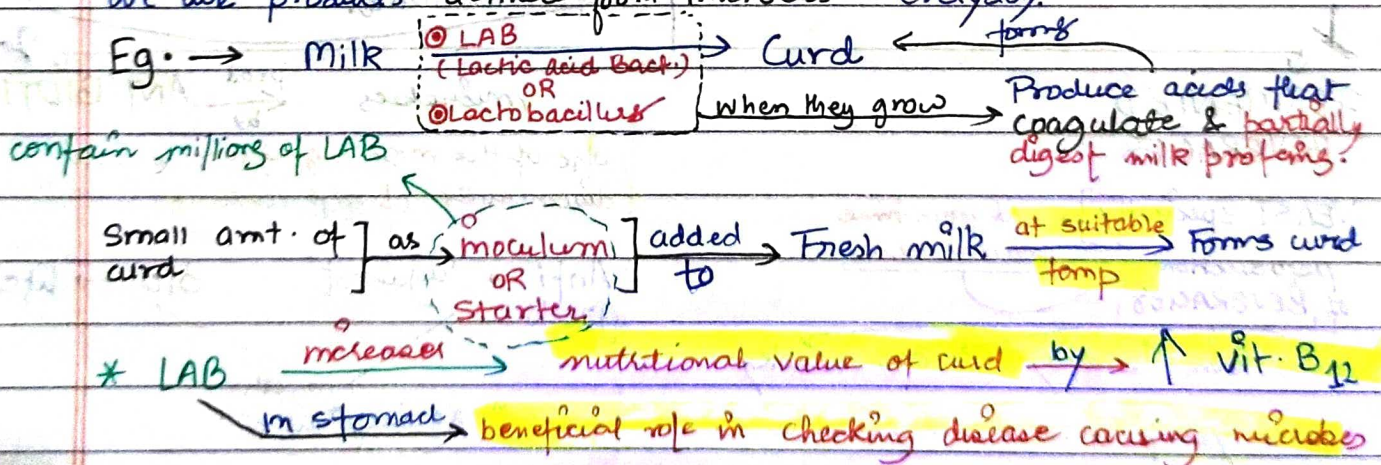 Eg. → Milk ⊙ LAB → Curd ← forms
(Lactic acid Bact.)
OR
⊙ Lactobacillus when they grow → Produce acids that
coagulate & partially
digest milk proteins.
contain millions of LAB
Small amt. of curd ] as → inoculum OR Starter ] added to → Fresh milk at suitable temp → Forms curd
* LAB increases → nutritional value of curd by → ↑ vit. B12
in stomach → beneficial role in checking disease causing microbes